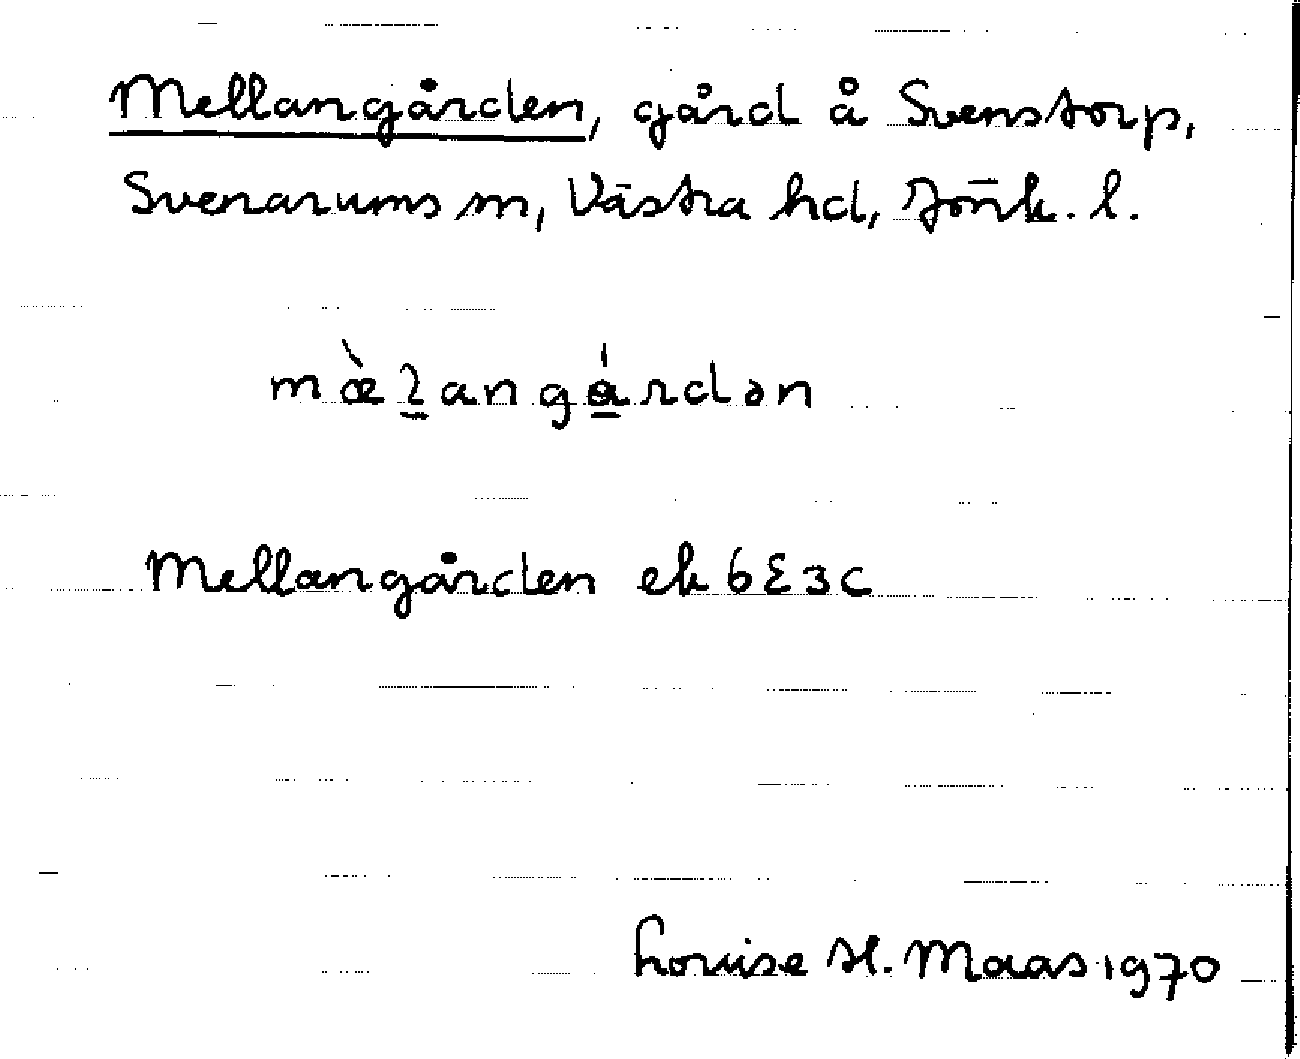 Mellangården, gård å Svenstorp,
Svenarums sn, Västra hd, Jönk. l.
mæ̀l̠angá̠rdən
Mellangården ek 6E3c
Louise H. Maas 1970